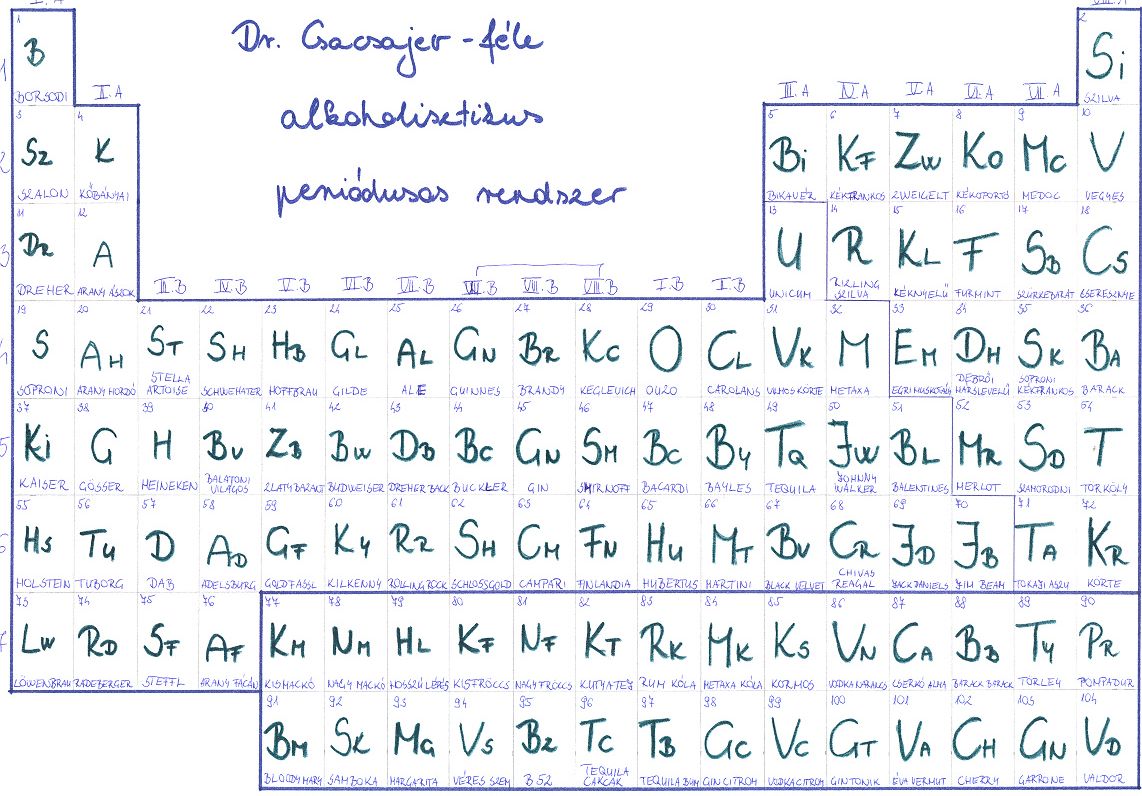 I. A
VIII. A
1
2
Dr. Csacsajer-féle
B
Si
1
BORSODI
II. A
III. A
IV. A
V. A
VI. A
VII. A
SZILVA
alkoholisztikus
3
4
5
6
7
8
9
10
Sz
K
Bi
KF
Zw
Ko
Mc
V
2
SZALON
KŐBÁNYAI
BIKAVÉR
KÉKFRANKOS
ZWEIGELT
KÉKOPORTÓ
MEDOC
VEGYES
periódusos rendszer
11
12
13
14
15
16
17
18
Dr
A
U
R
KL
F
SB
Cs
3
DREHER
ARANY ÁSZOK
UNICUM
RIZLING SZILVA
KÉKNYELŰ
FURMINT
SZÜRKEBARÁT
CSERESZNYE
III. B
IV. B
V. B
VI. B
VII. B
VIII. B
VIII. B
VIII. B
I. B
II. B
19
20
21
22
23
24
25
26
27
28
29
30
31
32
33
34
35
36
S
AH
ST
SH
HB
GL
AL
GN
BR
KC
O
CL
VK
M
EM
DH
SK
BA
4
SOPRONI
ARANY HORDÓ
STELLA ARTOISE
SCHWEHATER
HOFFBRAU
GILDE
ALE
GUINNES
BRANDY
KEGLEVICH
OUZO
CAROLANS
VILMOS KORTE
METAXA
EGRI MUSKOTÁLY
DEBRŐI HÁRSLEVELŰ
SOPRONI KÉKFRANKOS
BARACK
37
38
39
40
41
42
43
44
45
46
47
48
49
50
51
52
53
54
Ki
G
H
BV
ZB
BW
DB
BC
GN
SM
BC
BY
TQ
JW
BL
MR
SD
T
5
KAISER
GÖSSER
HEINEKEN
BALATONI VILÁGOS
ZLATY BAZANT
BUDWEISER
DREHER BACK
BUCKLER
GIN
SMIRNOFF
BACARDI
BAYLES
TEQUILA
JOHNNY WALKER
BALENTINES
MERLOT
SZAMORODNI
TÖRKÖLY
55
56
57
58
59
60
61
62
63
64
65
66
67
68
69
70
71
72
Hs
TU
D
AD
GF
KY
RR
SH
CM
FN
HU
MT
BV
CR
JD
JB
TA
KR
6
HOLSTEIN
TUBORG
DAB
ADELSBURG
GOLDFASSL
KILKENNY
ROLLING ROCK
SCHLOSSGOLD
CAMPARI
FINLANDIA
HUBERTUS
MARTINI
BLACK VELVET
CHIVAS REAGAL
JACK DANIELS
JIM BEAM
TOKAJI ASZÚ
KÖRTE
73
74
75
76
77
78
79
80
81
82
83
84
85
86
87
88
89
90
LW
RD
SF
AF
KM
NM
HL
KF
NF
KT
RK
MK
KS
VN
CA
BB
TY
PR
7
LÖWENBRAU
RADEBERGER
STEFFL
ARANY FÁCÁN
KISMACKÓ
NAGY MACKÓ
HOSSZÚLÉPÉS
KISFRÖCCS
NAGYFRÖCCS
KUTYATEJ
RUM KÓLA
METAXA KÓLA
KORMOS
VODKA NARANCS
CSERKÓ ALMA
BARACK BARACK
TORLEY
POMPADUR
91
92
93
94
95
96
97
98
99
100
101
102
103
104
BM
SK
MG
VS
B2
TC
TB
GC
VC
GT
VA
CH
GN
VD
BLOODY MARY
SAMBOKA
MARGARITA
VÉRES SZEM
B 52
TEQUILA CAKCAK
TEQUILA BUM
GIN CITROM
VODKA CITROM
GIN TONIK
ÉVA VERMUT
CHERRY
GARRONE
VALDOR